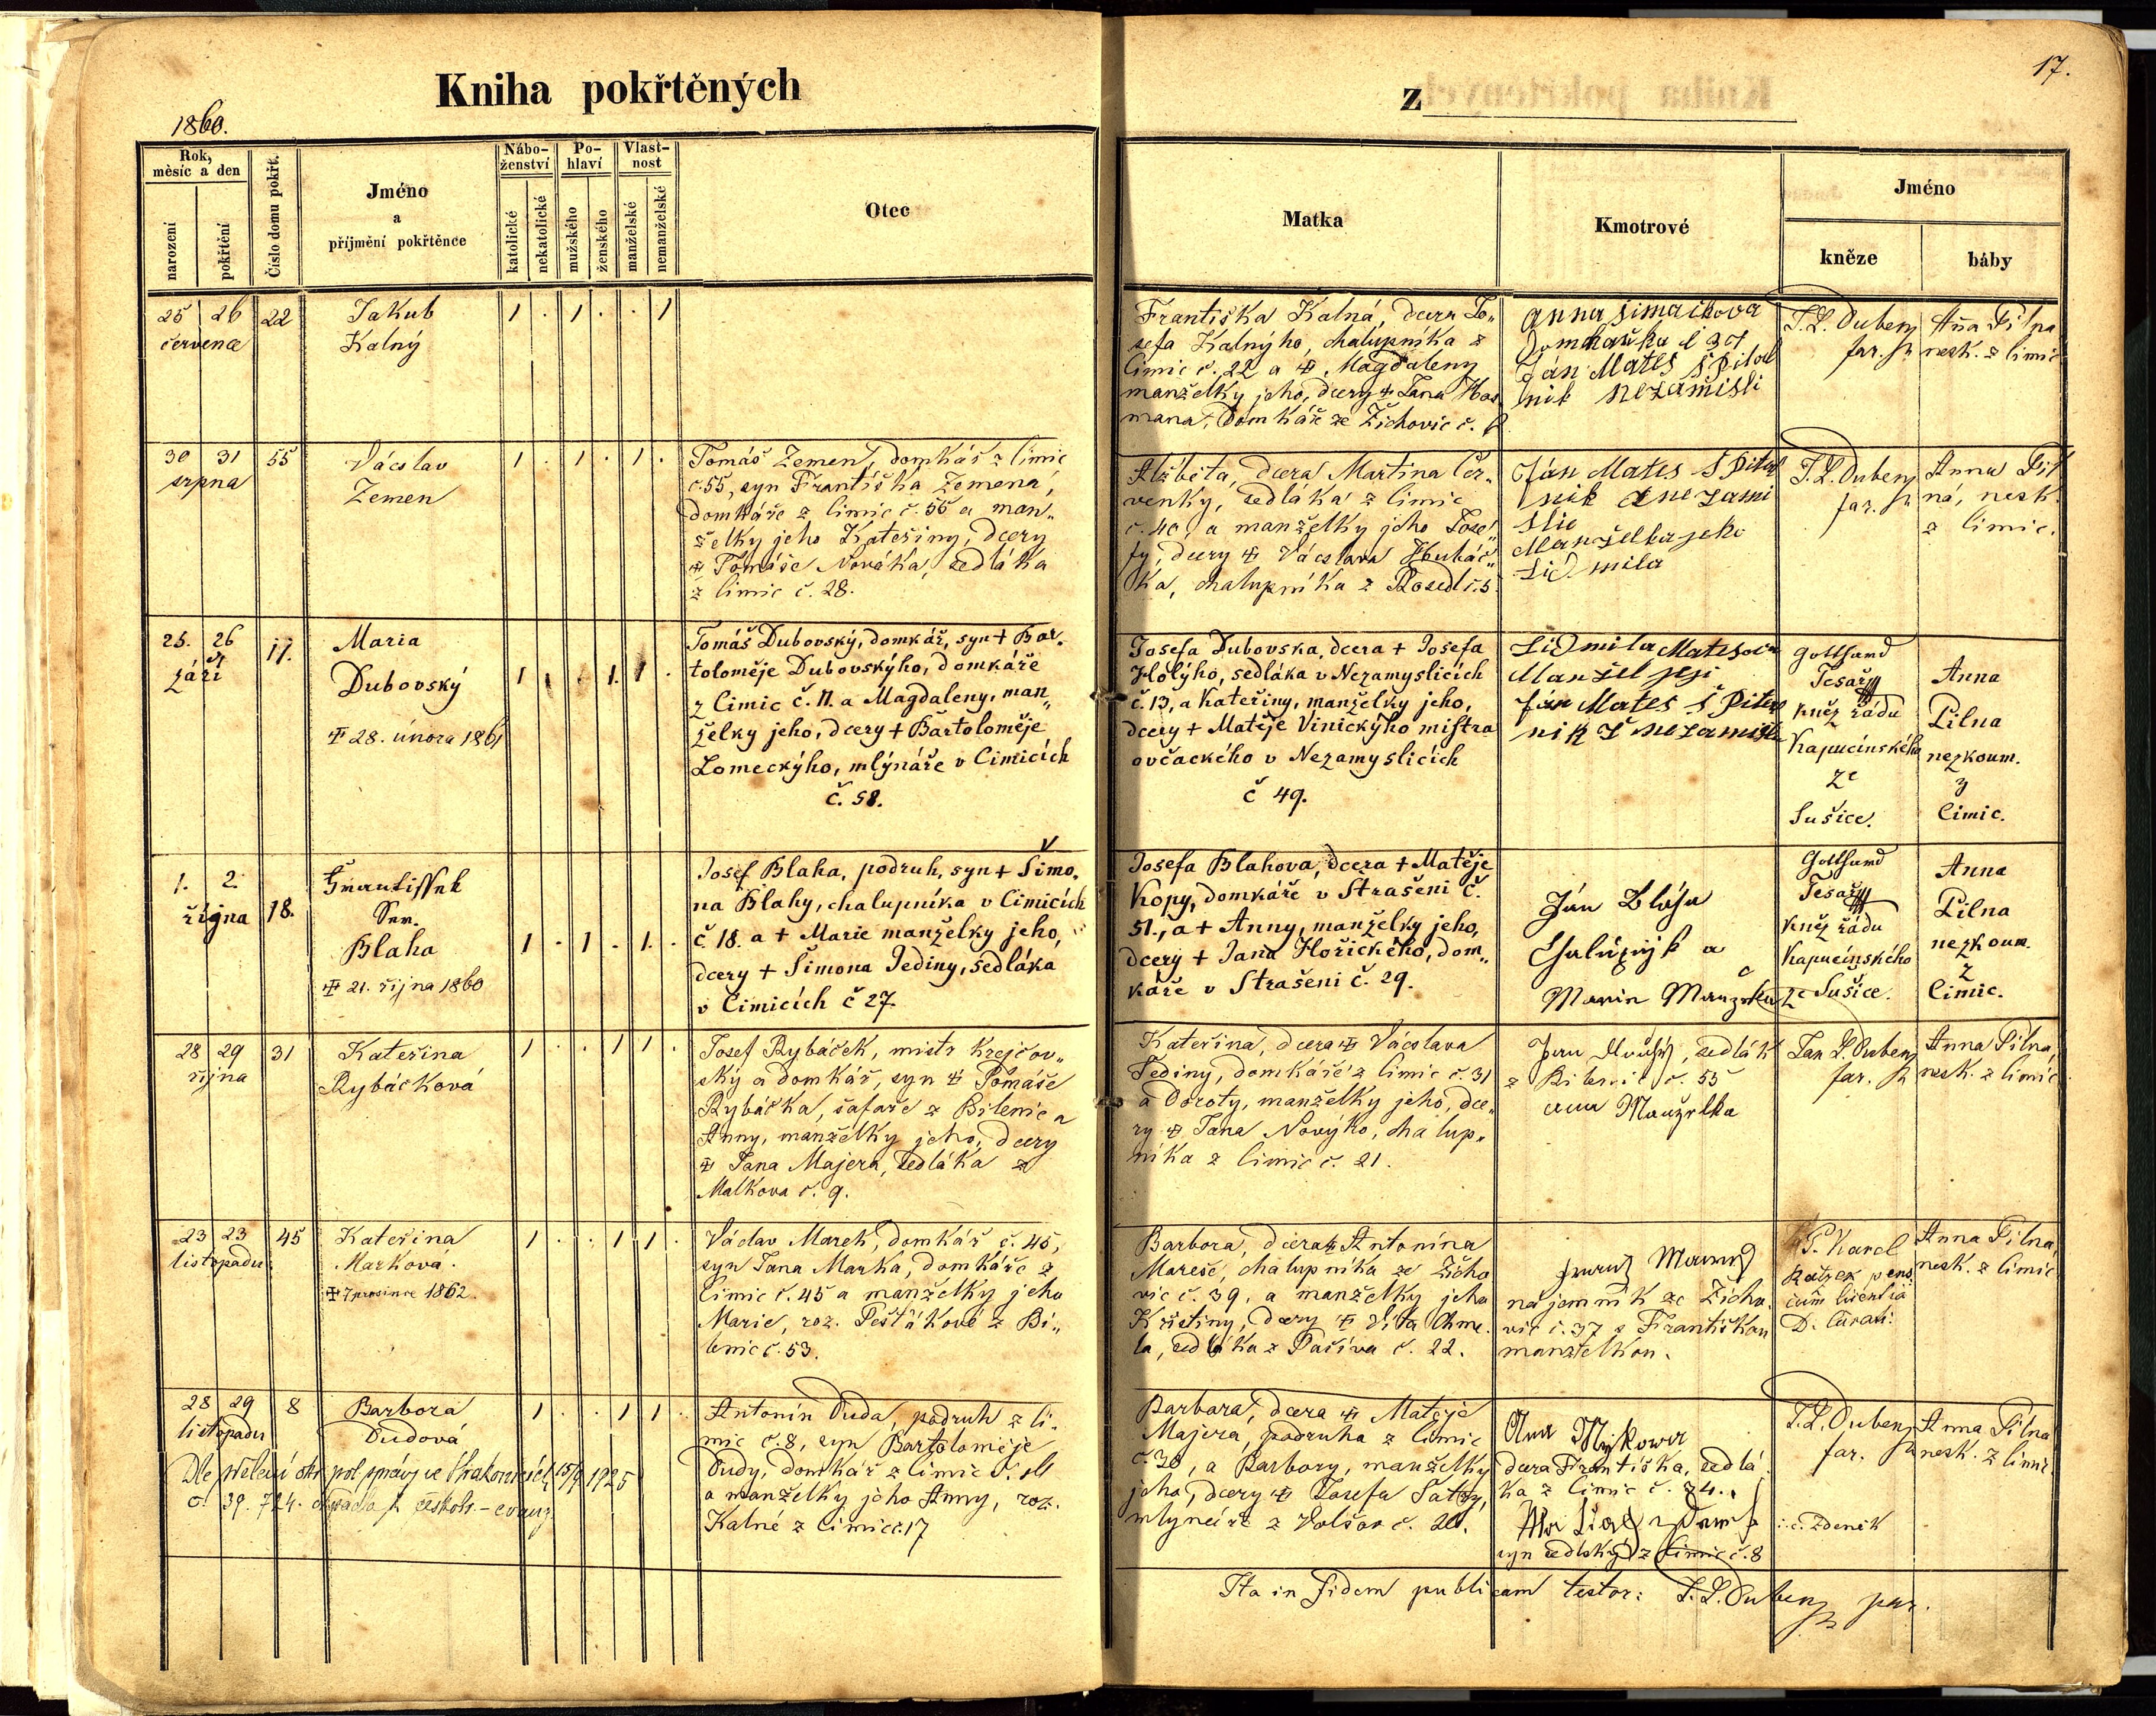 Kniha pokřtěných
z
17.
1860.
Rok,
měsíc a den
narození
pokřtění
Číslo domu pokřt.
Jméno
a
příjmění pokřtěnce
Nábo-
ženství
katolické
nekatolické
Po-
hlaví
mužského
ženského
Vlast-
nost
manželské
nemanželské
Otec
Matka
Kmotrové
Jméno
kněze
báby
25 26 22
července
Jakub
Kalný
1 . 1 . . 1
Františka Kalná, dcera Jo„
sefa Kalnýho, chalupníka z
Čimic č. 22 a ☩ Magdaleny
manželky jeho, dcery ☩ Jana
mana, domkáře ze Žichovic č.
Anna
Ján Mates Špital
nik
J. L. Dubenz
far.
Aña Pilna
nesk. z Čimic
30 31 55
srpna
Vácslav
Zemen
1 . 1 . 1 .
Tomáš Zemen, domkář z Čimic
č. 55, syn Františka Zemena,
domkáře z Čimic č. 55 a man„
želky jeho Kateřiny, dcery
☩ Tomáše Nováka, sedláka
z Čimic č. 28.
Alžběta, dcera Martina Čer„
venky, sedláka z Čimic
č. 40, a manželky jeho Jose„
fy, dcery ☩ Vácslava Hubáč„
ka, chalupníka z Rosedl č. 5
Ján Mates Špital
nik
Manželka jeho
Lidmila
J. L. Dubenz
far.
Anna Pil
ná, nesk.
z Čimic.
25. 26 17.
září
Maria
Dubovský
☩ 28. února 1861
1 . . 1. 1 .
Tomáš Dubovský, domkář, syn + Bar„
toloměje Dubovskýho, domkáře
z Čimic č. 11. a Magdaleny, man„
želky jeho, dcery + Bartoloměje
Lomeckýho, mlýnáře v Čimicích
č. 58.
Josefa Dubovska, dcera + Josefa
Holýho, sedláka v Nezamyslicích
č. 13, a Kateřiny, manželky jeho,
dcery + Matěje Vinickýho mistra
ovčackého v Nezamyslicích
č 49.
Lidmila Matesova
Manžel jeji
Ján Mates Špital
nik
Gotthard
Tesař
kněz řádu
Kapucínského
ze
Sušice.
Anna
Pilna
nezkoum.
z
Čimic.
1. 2. 18.
října
Frantisſek
Ser.
Blaha
☩ 21. října 1860
1 . 1 . 1. .
Josef Blaha, podruh, syn + Šimo„
na Blahy, chalupníka v Čimicích
č. 18. a + Marie manželky jeho,
dcery + Šimona Jediny, sedláka
v Čimicích č 27.
Josefa Blahova, dcera + Matěje
Kopy, domkáře v Strašeni č.
51., a + Anny, manželky jeho,
dcery + Jana Hořického, dom„
káře v Strašeni č. 29.
Ján Bláha
a
Marie
Gotthard
Tesař
kněz řádu
Kapucínského
ze Sušice.
Anna
Pilna
nezkoum.
z
Čimic.
28 29 31
října
Kateřina
Rybáčková
1 . . 1 1 .
Josef Rybáček, mistr krejčov„
ský a domkář, syn ☩ Tomáše
Rybáčka, šafaře z Bilenic a
Anny, manželky jeho, dcery
☩ Jana Majera, sedláka z
Malkova č. 9.
Kateřina, dcera ☩ Vácslava
Jediny, domkáře z Čimic č. 31
a Doroty, manželky jeho, dce„
ry ☩ Jana Novýho, chalup„
níka z Čimic č. 21.
Jan, sedlák
z Bilenic č. 55
Manželka
Jan L. Dubenz
far.
Anna Pilna,
nesk. z Čimic
23 23 45
listopadu
Kateřina
Marková.
☩ 7 prosince 1862.
1 . . 1 1 .
Václav Marek, domkář č. 45,
syn Jana Marka, domkáře z
Čimic č. 45 a manželky jeho
Marie, roz. Pešťákové z Bi„
lenic č. 53.
Barbora, dcera ☩ Antonína
Mareše, chalupníka ze Žicho
vic č. 39, a manželky jeho
Kristiny, dcery ☩ Víta Chme„
la, sedláka z Pačiva č. 22.
nájemník ze Žicho„
vic č. 37 s Františkou
manželkou.
P. Karel
pens.
cum licentia
D. Curati.
Anna Pilna,
nesk. z Čimic
28 29 8
listopadu
Barbora
Dudová
Dle přelení okr. pol. správy ve Strakonicích 15/9 1925
č. 39.724.
1 . . 1 1 .
Antonín Duda, podruh z Či„
mic č. 8, syn Bartoloměje
Dudy, domkář z Čimic č. 11
a manželky jeho Anny, roz.
Kalné z Čimic č. 17
Barbara, dcera ☩ Matěje
Majera, podruha z Čimic
č. 30, a Barbory, manželky
jeho, dcery ☩ Josefa
mlynáře z Volšov č.
dcera Františka, sedlá„
ka z Čimic č. 24.
syn sedlský z Čimic č. 8
J. L. Dubenz
far.
Zdeněk
Anna Pilna
nesk. z Čimic
Ita in fidem publicam testor: J. L. Dubenz par.